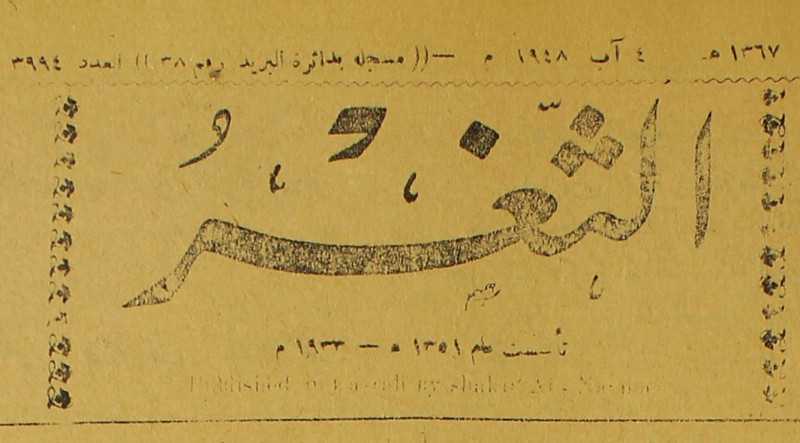 ١٣٦٧ هـ ٤ آب ١٩٤٨ م —(( مسجله بدائرة البريد رقم ٣٨ )) العدد ٣٩٩٤
الثغر
تأسست عام ١٣٥١ هـ — ١٩٣٣ م
Published